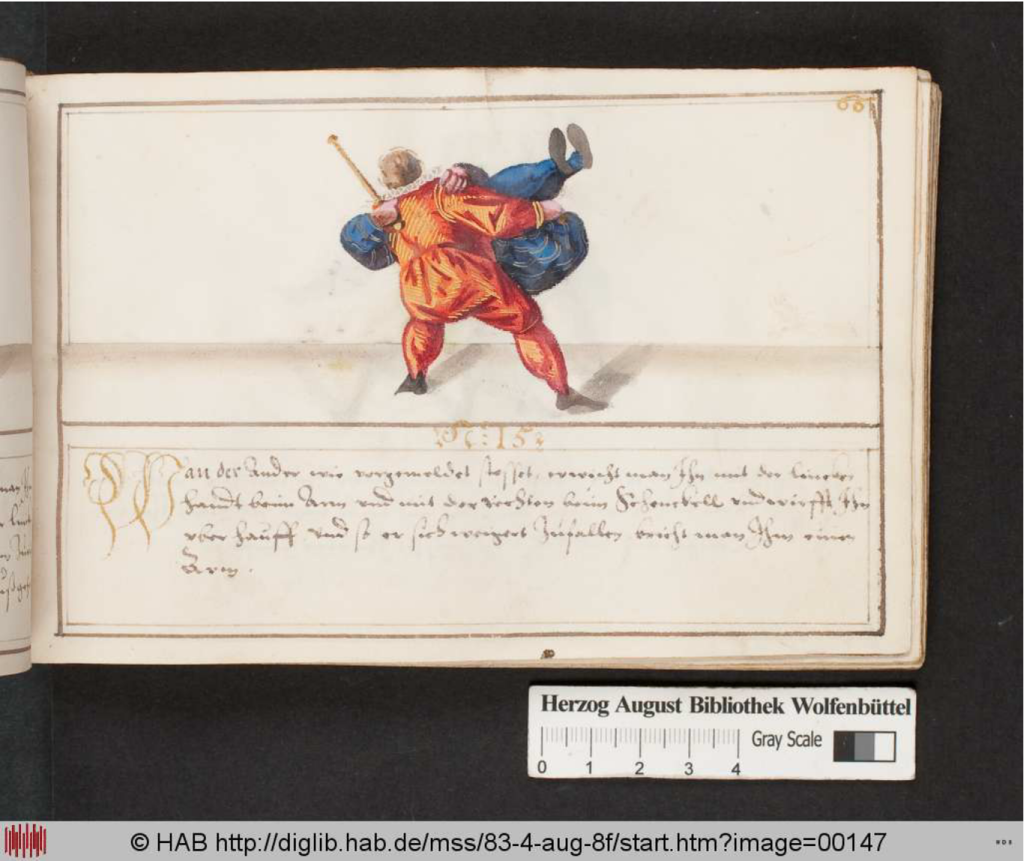 66
N: 15
Wan der Ander wie vorgemeldet stosset, erwischt man Ihn mit der lincken
handt beim Arm vnd mit der rechten beim Schenckell vnd wirfft Ihn
vber hauff vnd so er sich weigert Zufallen bricht man Ihm einen
Arm.
Herzog August Bibliothek Wolfenbüttel
Gray Scale
0 1 2 3 4
© HAB http://diglib.hab.de/mss/83-4-aug-8f/start.htm?image=00147